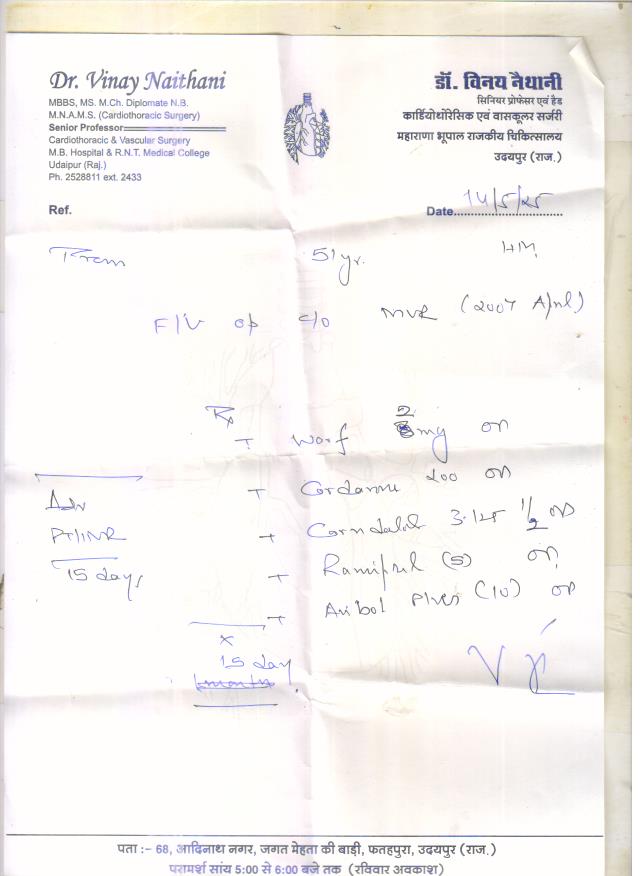 Dr. Vinay Naithani
MBBS, MS. M.Ch. Diplomate N.B.
M.N.A.M.S. (Cardiothoracic Surgery)
Senior Professor
Cardiothoracic & Vascular Surgery
M.B. Hospital & R.N.T. Medical College
Udaipur (Raj.)
Ph. 2528811 ext. 2433
डॉ. विनय नैथानी
सिनियर प्रोफेसर एवं हैड
कार्डियोथोरेसिक एवं वासकूलर सर्जरी
महाराणा भूपाल राजकीय चिकित्सालय
उदयपुर (राज.)
Ref.
Date 14/5/25
51 yr.
F/U op c/o MVR (2007 April)
Rx
T Warf 2 mg OD
T Cordarone 200 OD
T 3.125 1/2 OD
T Ramipril (5) OD
T (10) OD
Adv
PT/INR
15 days
x
15 day
पता :- 68, आदिनाथ नगर, जगत मेहता की बाड़ी, फतहपुरा, उदयपुर (राज.)
परामर्श सांय 5:00 से 6:00 बजे तक (रविवार अवकाश)